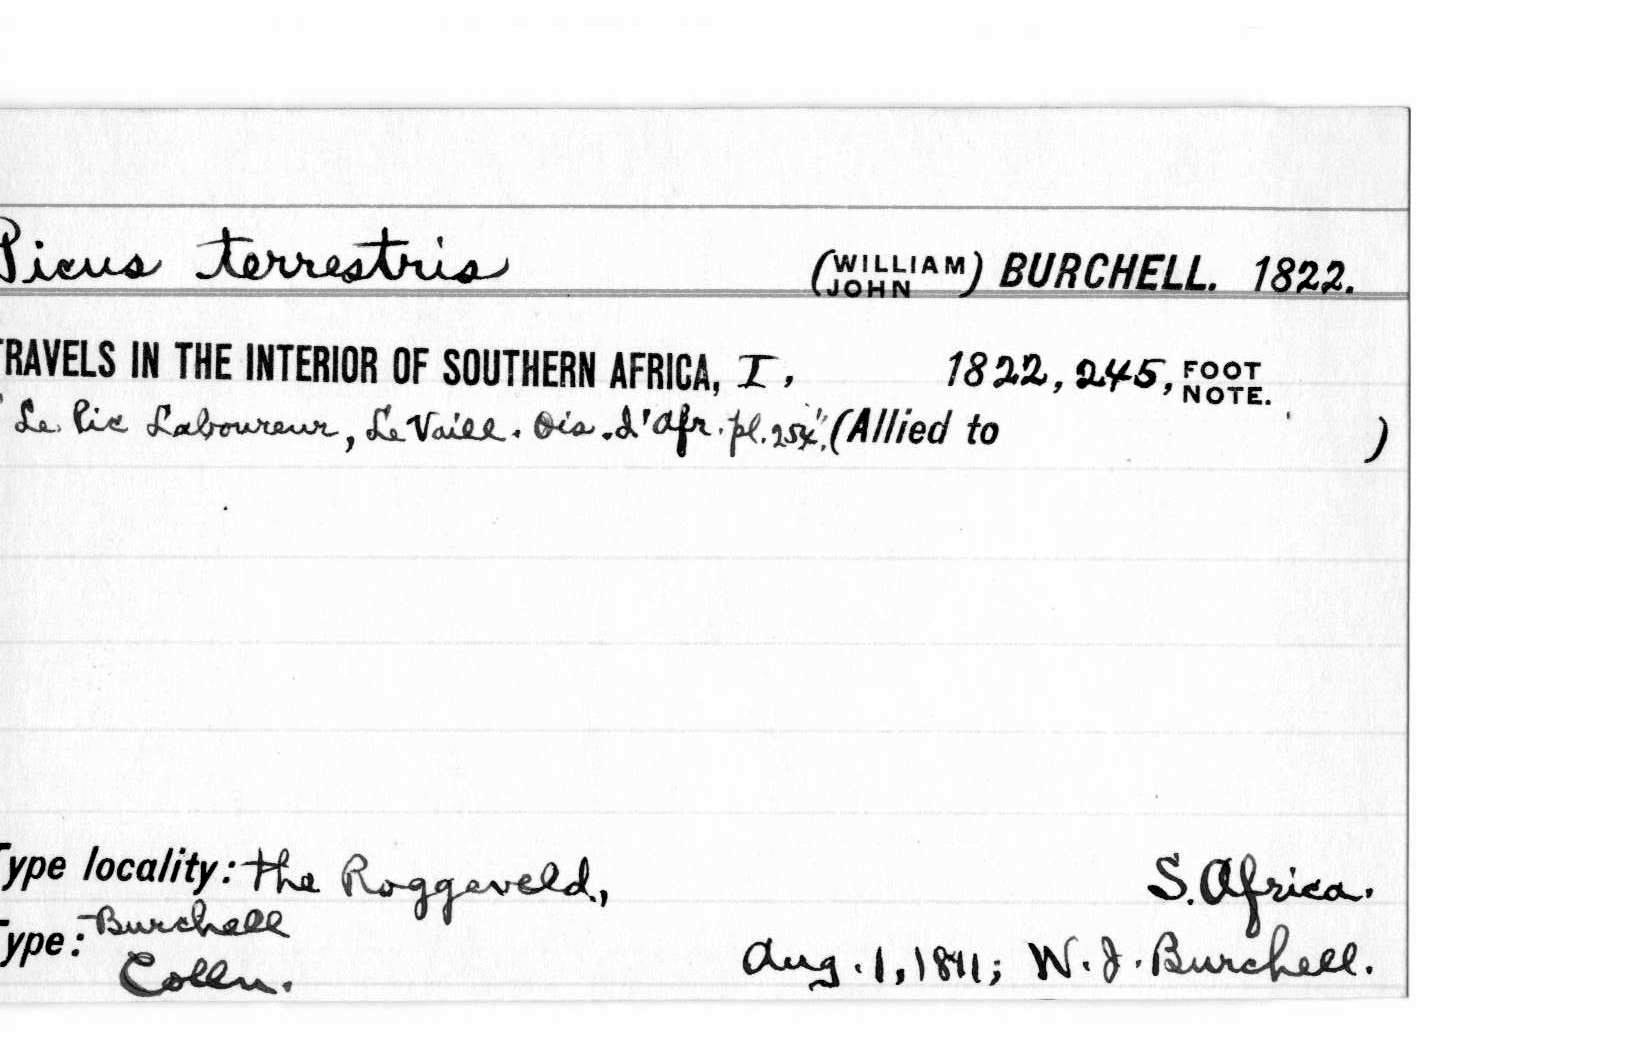 Picus terrestris (WILLIAM JOHN) BURCHELL. 1822.
TRAVELS IN THE INTERIOR OF SOUTHERN AFRICA, I, 1822, 245, FOOT NOTE.
" Le Pic Laboureur, Le Vaill. Ois. d'Afr. pl. 254". (Allied to )
Type locality: the Roggeveld, S. Africa.
Type: Burchell Colln. Aug. 1, 1811; W. J. Burchell.